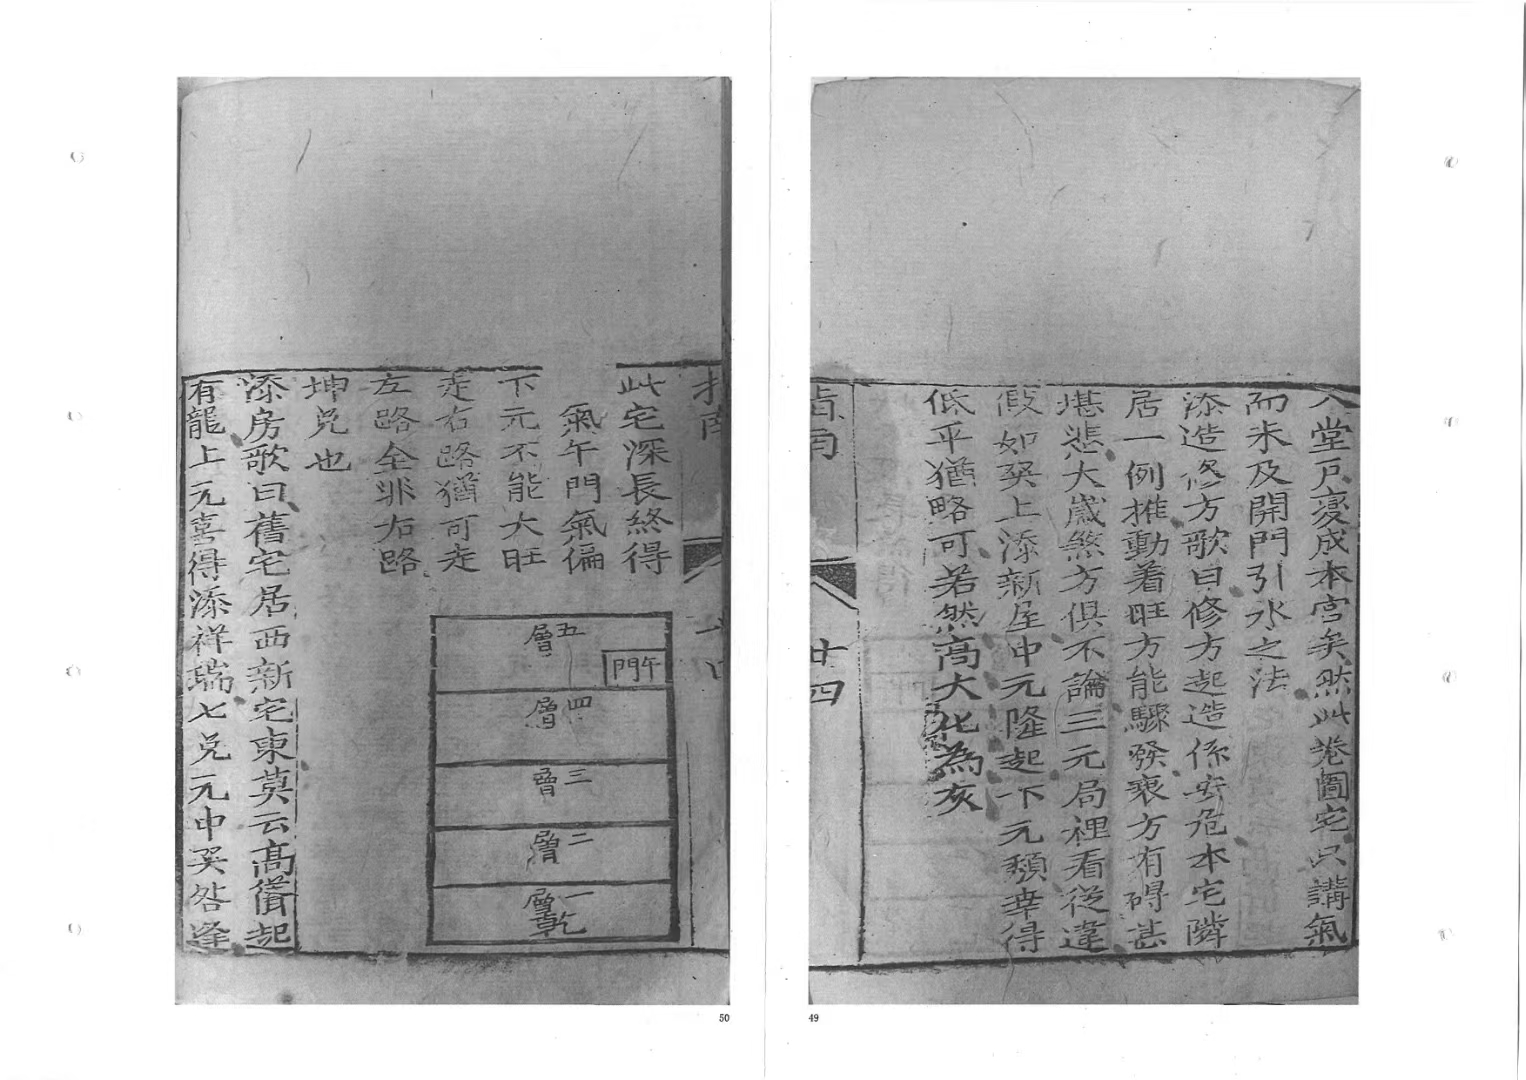 入堂戶憂成本宮矣然此巷圖宅只講氣
而未及開門引水之法
添造修方歌曰修方起造係安危本宅隣
居一例推動着旺方能驟發衰方有碍甚
堪悲大嵗煞方俱不論三元局裡看從違
假如巽上添新屋中元隆起下元頽幸得
低平猶略可若然高大化為灰
指南
廿四
指南
此宅深長終得
氣午門氣偏
下元不能大旺
走右路猶可走
左路全非右路
坤兌也
五層
午門
四層
三層
二層
一層
乾
添房歌曰舊宅居西新宅東莫云高聳起
有龍上元喜得添祥瑞七兌元中巽咎逢
50
49